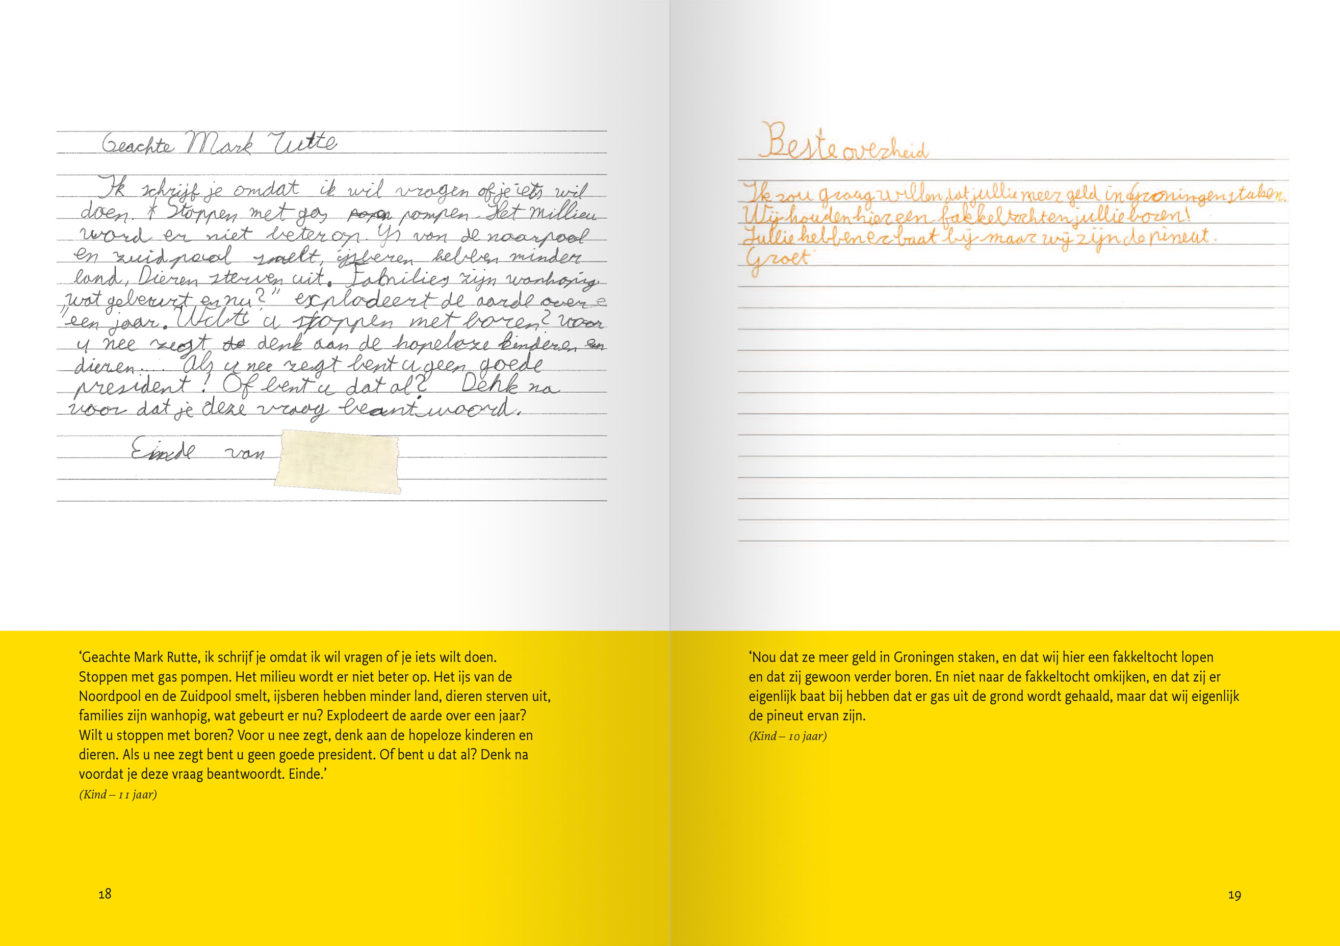 Geachte Mark Rutte
Ik schrijf je omdat ik wil vragen of je iets wil
doen. * Stoppen met gas pompen. Het millieu
word er niet beter op. Ys van de noarpool
en zuidpool smelt, ijsberen hebben minder
land, Dieren sterven uit. Families zijn wanhopig
„wat gebeurt er nu?” explodeert de aarde over
een jaar. Wilt u stoppen met boren? voor
u nee zegt denk aan de hopeloze kinderen en
dieren... Als u nee zegt bent u geen goede
president! Of bent u dat al? Denk na
voor dat je deze vraag beantwoord.
Einde van
Beste overheid
Ik zou graag willen dat jullie meer geld in Groningen staken.
Wij houden hier een fakkeltochten jullie boren!
Jullie hebben er baat bij maar wij zijn de pineut.
Groet
‘Geachte Mark Rutte, ik schrijf je omdat ik wil vragen of je iets wilt doen.
Stoppen met gas pompen. Het milieu wordt er niet beter op. Het ijs van de
Noordpool en de Zuidpool smelt, ijsberen hebben minder land, dieren sterven uit,
families zijn wanhopig, wat gebeurt er nu? Explodeert de aarde over een jaar?
Wilt u stoppen met boren? Voor u nee zegt, denk aan de hopeloze kinderen en
dieren. Als u nee zegt bent u geen goede president. Of bent u dat al? Denk na
voordat je deze vraag beantwoordt. Einde.’
(Kind – 11 jaar)
18
‘Nou dat ze meer geld in Groningen staken, en dat wij hier een fakkeltocht lopen
en dat zij gewoon verder boren. En niet naar de fakkeltocht omkijken, en dat zij er
eigenlijk baat bij hebben dat er gas uit de grond wordt gehaald, maar dat wij eigenlijk
de pineut ervan zijn.
(Kind – 10 jaar)
19